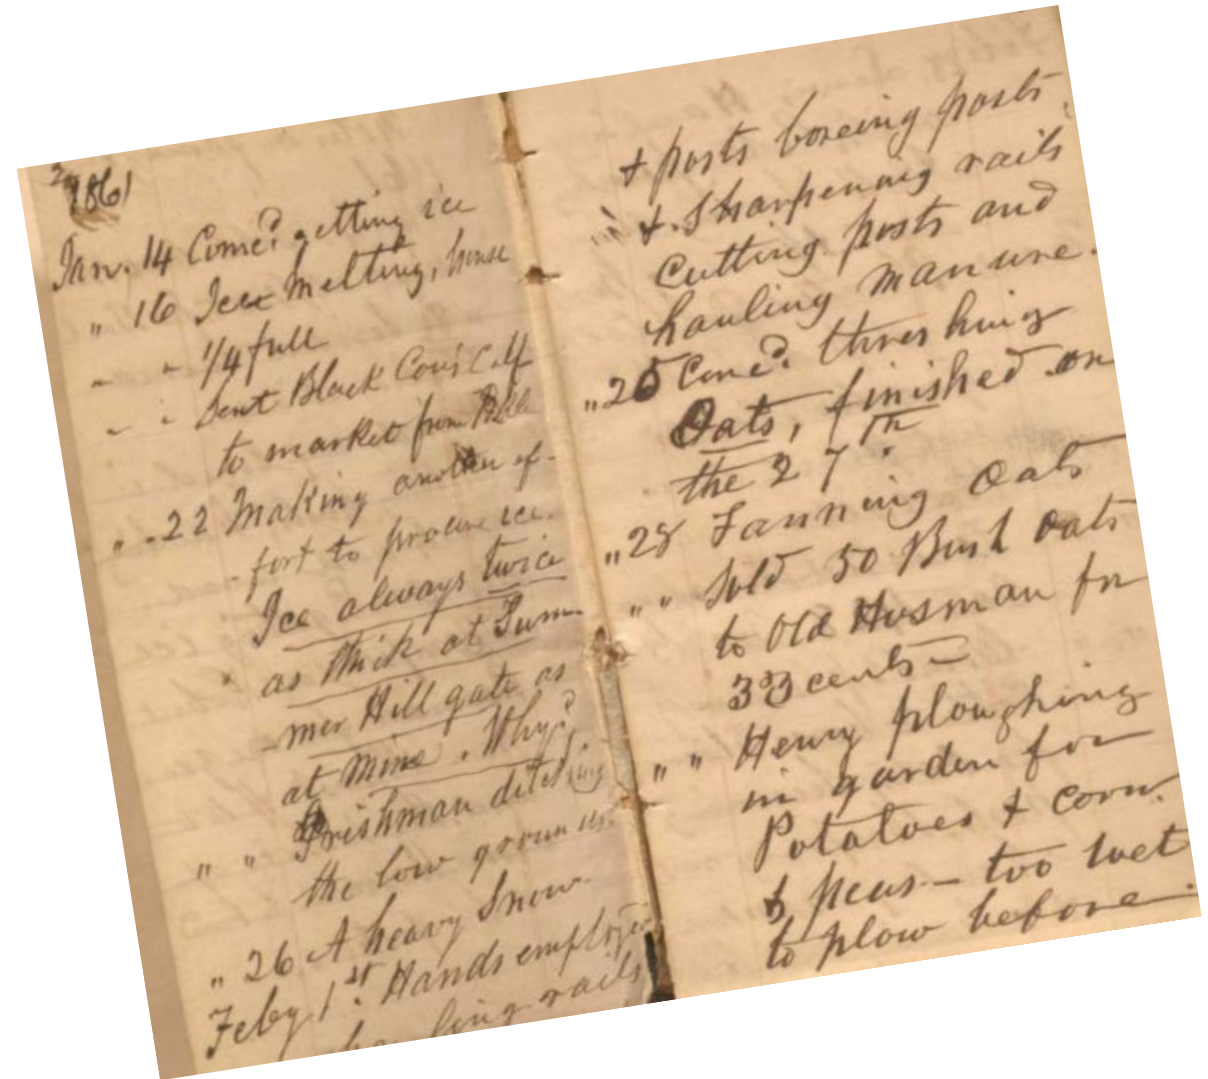 1861
Jan. 14 Comc'd getting ice
" 16 Ice melting, house
" " 1/4 full
" " Sent Black Cow's Calf
to market from
" 22 Making another ef-
fort to procure ice.
Ice always twice
" as thick at Sum-
mer Hill gate as
at mine. Why?
" " Irishman ditching
the low grounds.
" 26 A heavy Snow.
Feby 1st. Hands employed
hauling rails
& posts boreing posts
& Sharpening rails
Cutting posts and
hauling manure.
" 25 Comc'd. threshing
Oats, finished on
the 27th.
" 28 Fanning Oats
" " Sold 50 Bush Oats
to Old Husman for
33 cents —
" " Henry ploughing
in garden for
Potatoes & corn.
& peas — too wet
to plow before.